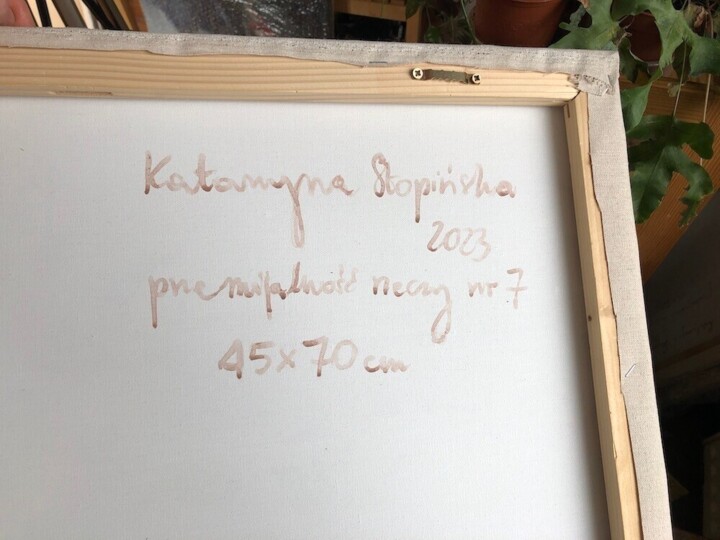 Katarzyna Stopińska
2023
przemijalność rzeczy nr 7
45x70 cm